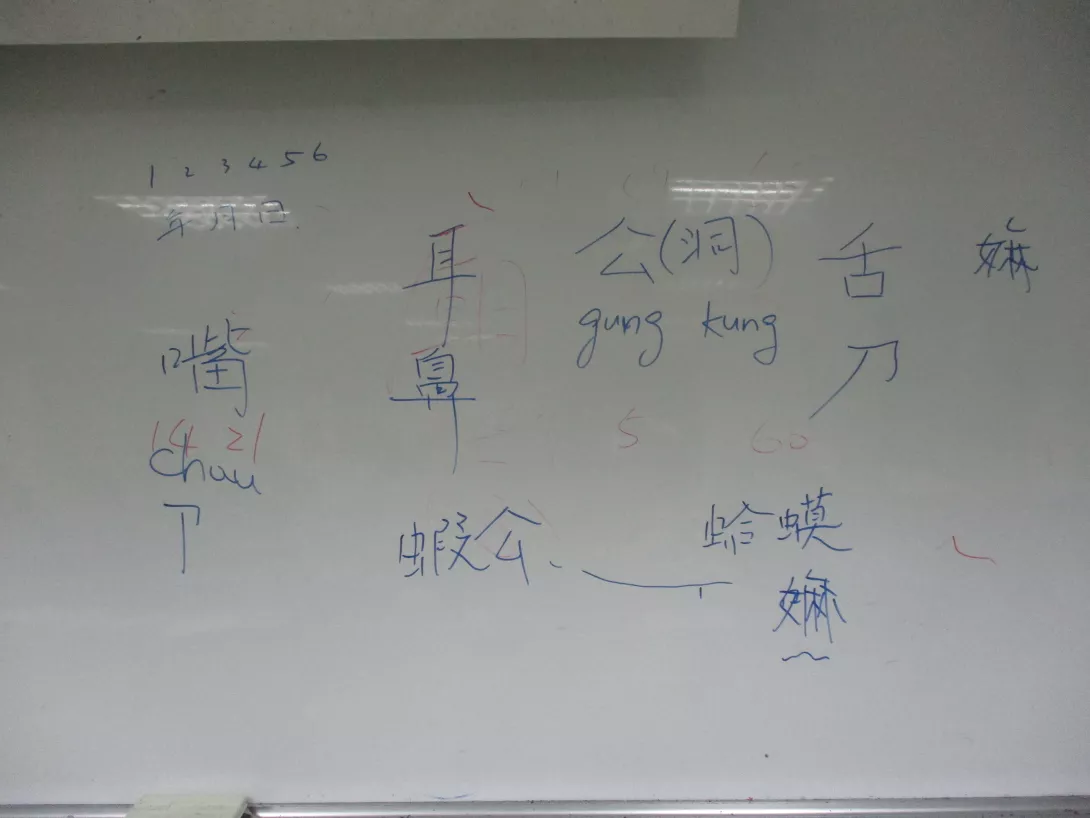 1 2 3 4 5 6
年月日
耳 公(洞) 舌 嫲
gung kung
嘴 鼻 刀
14 21 5 60
chou
蝦公 蛤蟆
嫲